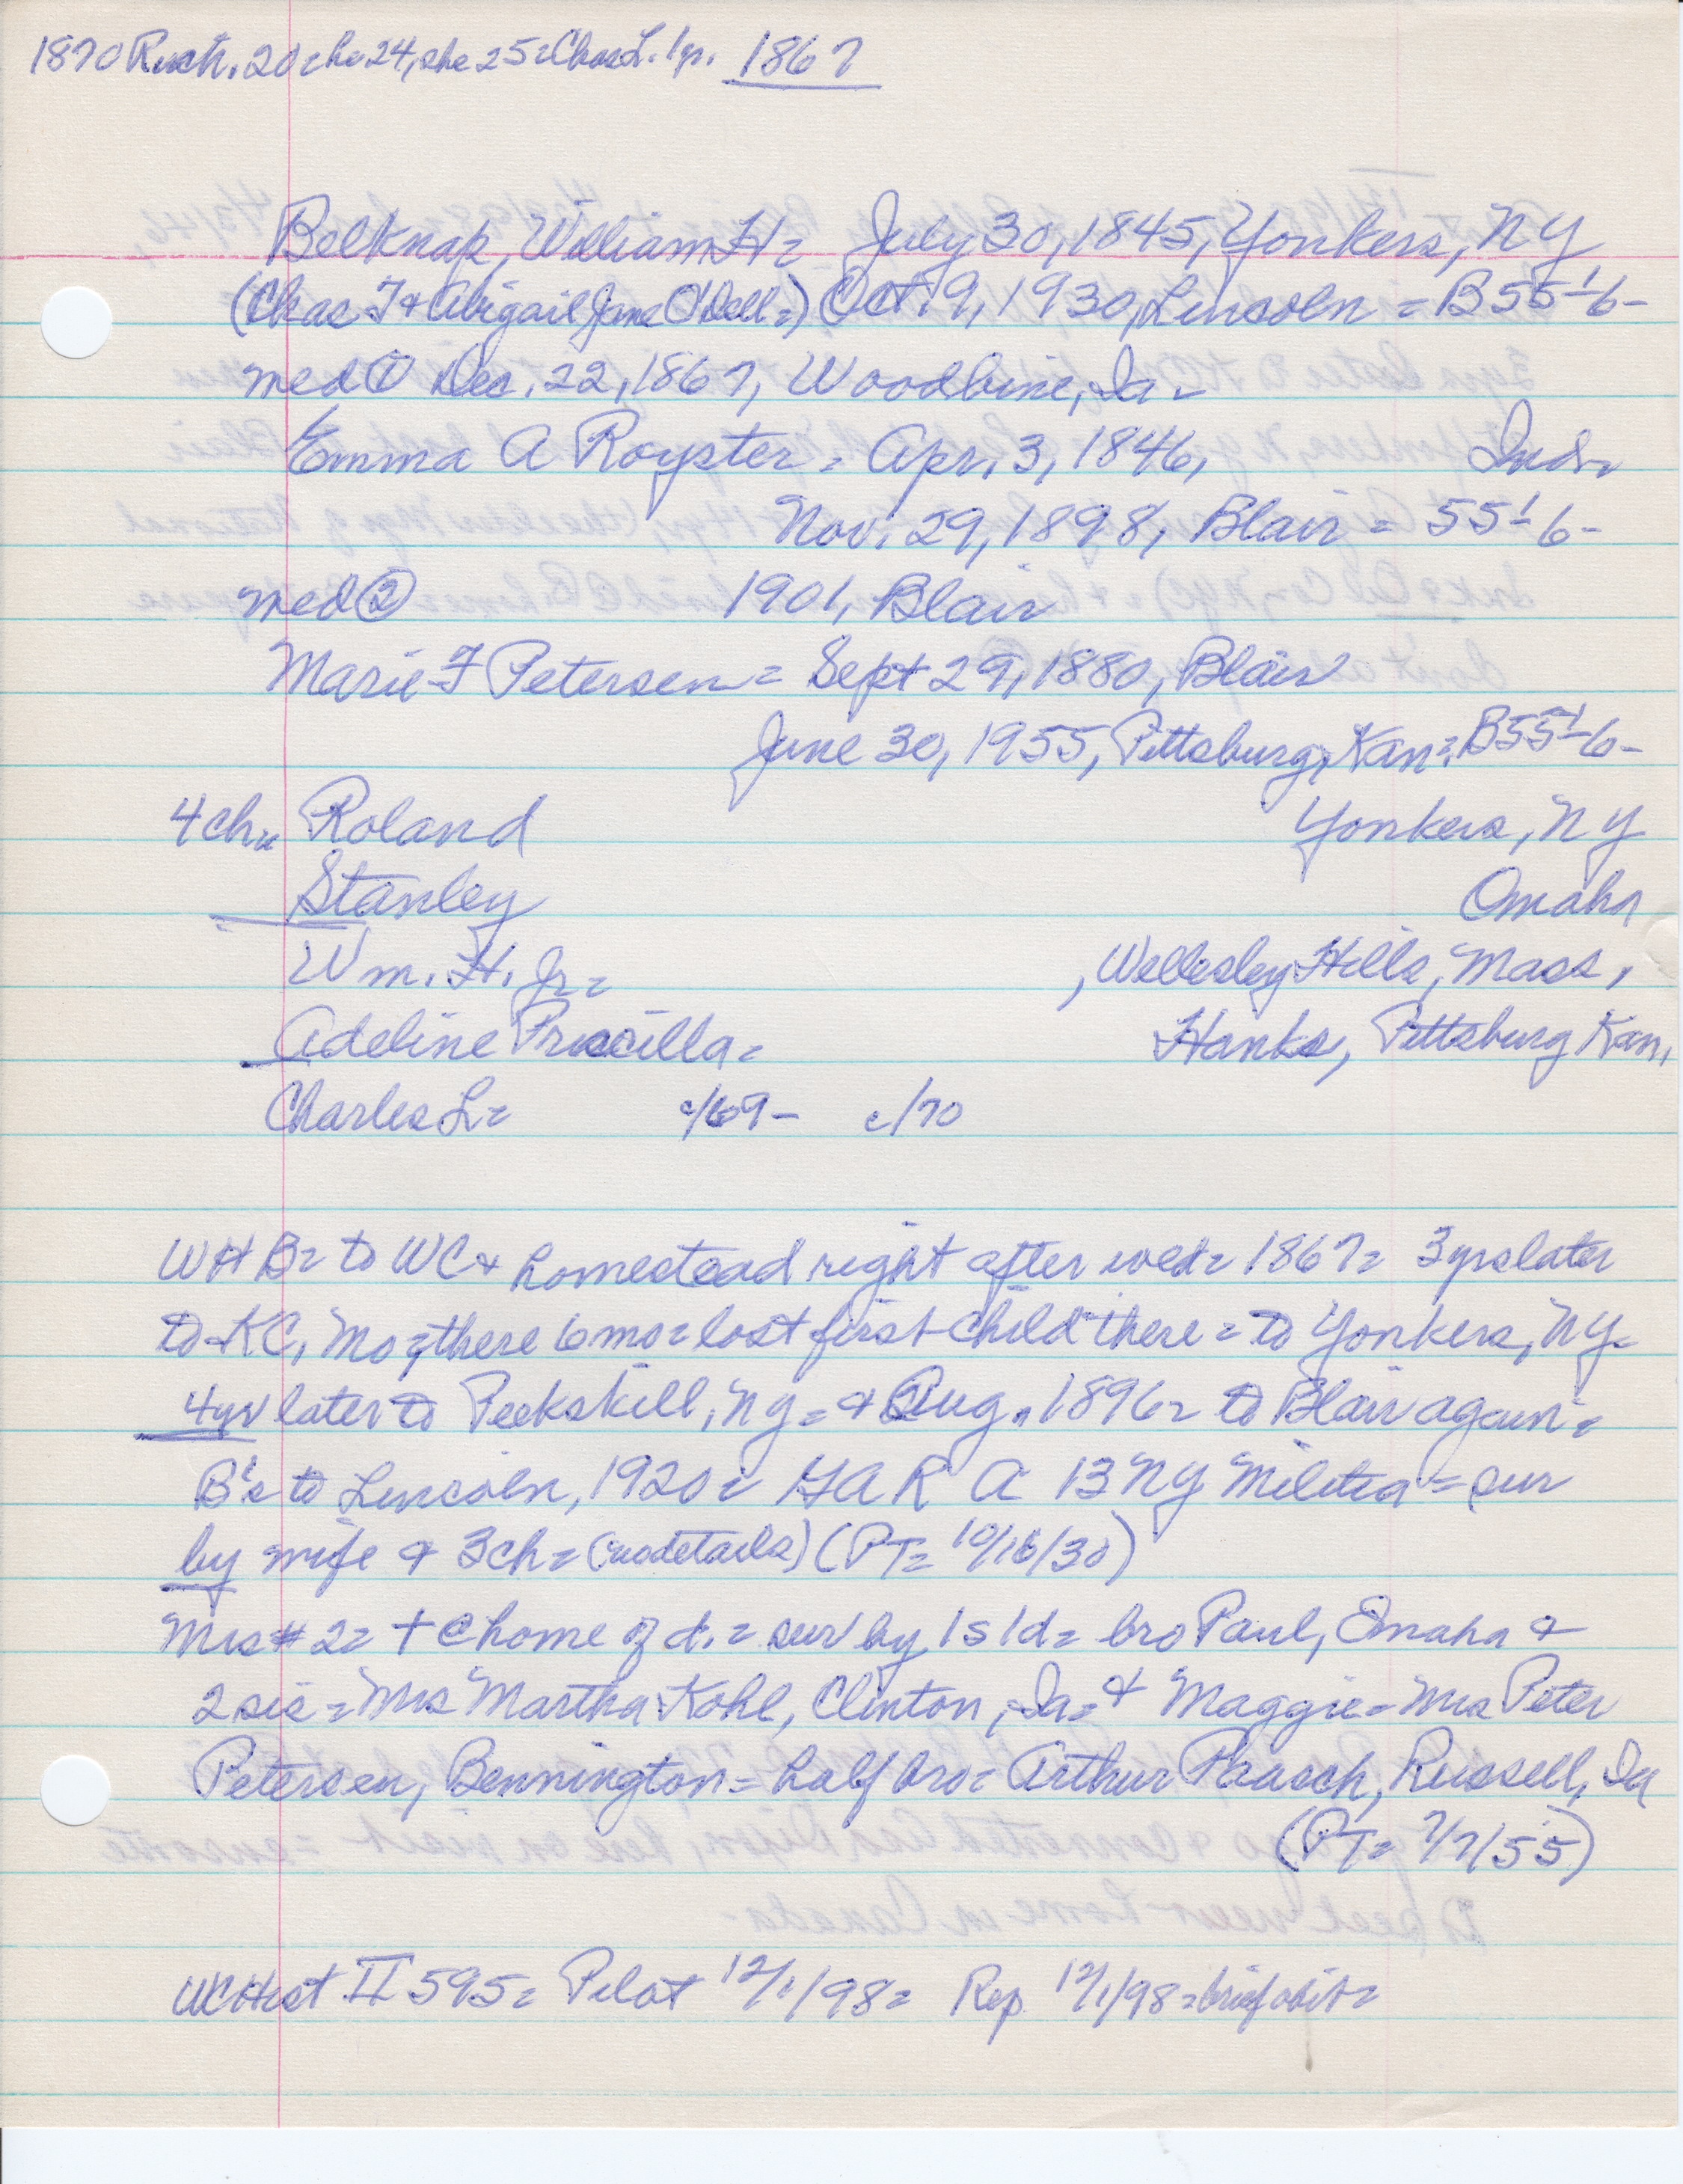 1870 Rich. 20 = he 24, she 25 = Chas L. 1 yr. 1867
Belknap, William H = July 30, 1845, Yonkers, NY
(Chas F + Abigail Jane O'Dell =) Oct 9, 1930, Lincoln = B 55-1-6-
med ① Dec. 22, 1867, Woodbine, Ia =
Emma A Royster = Apr. 3, 1846, Ind =
Nov. 29, 1898, Blair = 55-1-6-
med ② 1901, Blair
Marie F Petersen = Sept 29, 1880, Blair
June 30, 1955, Pittsburg, Kan = B55-1-6-
4 ch = Roland Yonkers, NY
Stanley Omaha
Wm. H. Jr = , Wellesley Hills, Mass,
Adeline Priscilla = Hanks, Pittsburg Kan,
Charles L = c/69- c/70
WHB = to WC + homestead right after wed = 1867 = 3 yrs later
to KC, Mo = there 6 mo = lost first child there = to Yonkers, NY =
4 yr later to Peekskill, NY = + Aug. 1896 = to Blair again =
B's to Lincoln, 1920 = GAR A 13 NY Militia = sur
by wife + 3 ch = (no details) (PT = 10/16/30)
Mrs # 2 = + @ home of d. = sur by 1s 1d = bro Paul, Omaha +
2 sis = Mrs Martha Kohl, Clinton, Ia = + Maggie = Mrs Peter
Petersen, Bennington = half bro = Arthur Paasch, Russell, Ia
(PT = 7/7/55)
WCHist II 595 = Pilot 12/1/98 = Rep 12/1/98 = brief obit =